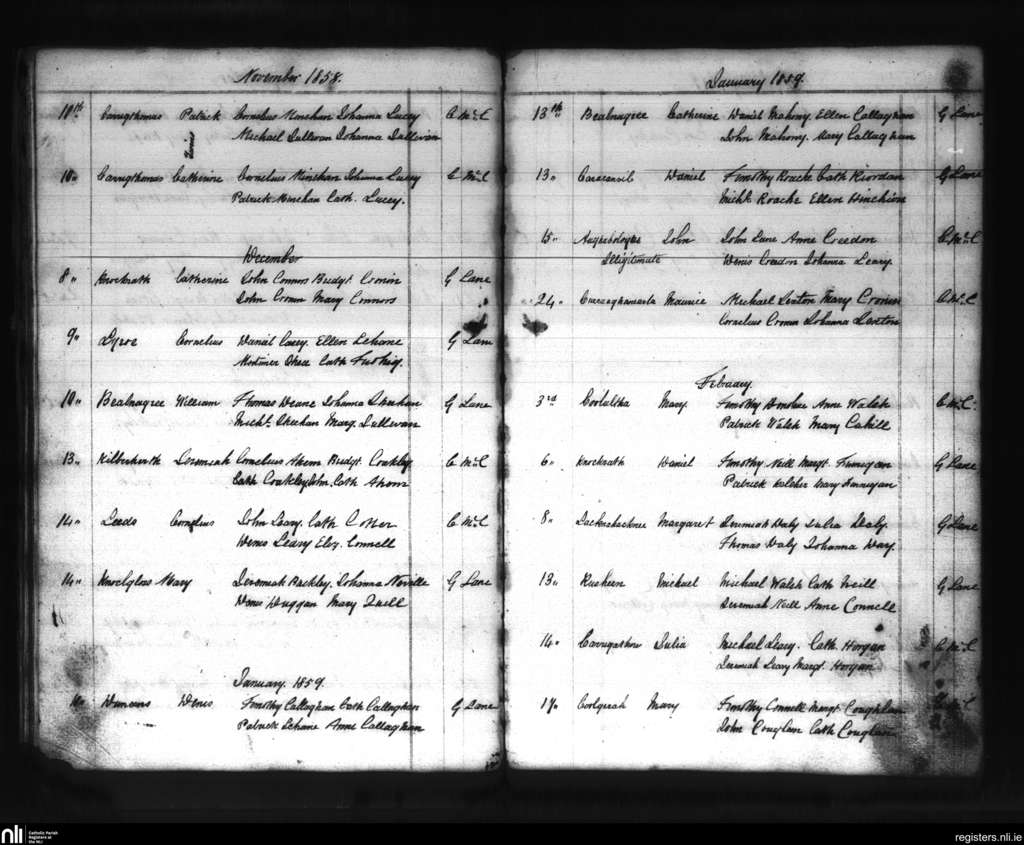 November 1858.
10th Carrigthomas Patrick Cornelius Minehan Johanna Lucey C. McC
Michael Sullivan Johanna Sullivan
Twins
10 " Carrigthomas Catherine Cornelius Minehan Johanna Lucey C. McC
Patrick Minehan Cath. Lucey.
December
8 " Knockrath Catherine John Connors Bridgt. Cronin G Lane
John Cronin Mary Connors
9 " Cornelius Daniel Casey. Ellen Lehane G Lane
Mortimer Shea Cath
10 " Bealnagree William Thomas Deane Johanna Sheehan G Lane
Michl. Sheehan Marg. Sullivan
13 " Jeremiah Cornelius Ahern Bridgt. Coakley C. McC
Cath Coakley John, Cath Ahern
14 " Leeds Cornelius John Leary. Cath Cotter C. McC
Denis Leary Eliz. Connell
14 " Mary Jeremiah Buckley. Johanna Neville G Lane
Denis Duggan Mary Quill
January. 1859.
Denis Timothy Callaghan Cath Callaghan G Lane
Patrick Lehane Anne Callaghan
January 1859.
13th Bealnagree Catherine Daniel Mahony Ellen Callaghan G Lane
John Mahony. Mary Callaghan
13 " Daniel Timothy Roache Cath Riordan G Lane
Michl. Roache Ellen Hinchion
15 " John John Lane Anne Creedon C. McC
Illigitimate Denis Creedon Johanna Leary.
24 " Maurice Michael Linton Mary Cronin C. McC
Cornelius Cronin Johanna Linton
February.
3rd Mary. Timothy Donohue Anne Walsh C. McC.
Patrick Walsh Mary Cahill
6 " Knockrath Daniel Timothy Neill Margt. Finnegan G Lane
Patrick Kelcher Mary Finnegan
8 " Margaret Jeremiah Daly Julia Daly. G Lane
Thomas Daly Johanna Daly.
13 " Rusheen Michael Michael Walsh Cath Neill G Lane
Jeremiah Neill Anne Connell
14 " Julia Michael Leary. Cath. Horgan C. McC
Jeremiah Leary Margt. Horgan
17 " Coolgirah Mary Timothy Connell Margt. Coughlan
John Coughlan Cath Coughlan
nli
Catholic Parish
Registers at
the NLI
registers.nli.ie